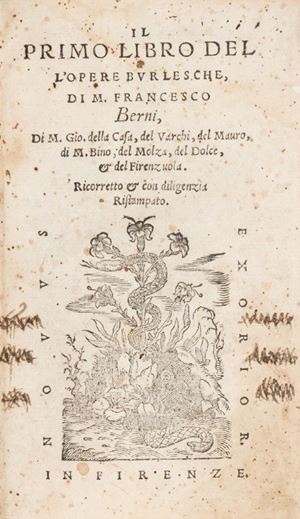 IL
PRIMO LIBRO DEL
L'OPERE BVRLESCHE,
DI M. FRANCESCO
Berni,
Di M. Gio. della Casa, del Varchi, del Mauro,
di M. Bino, del Molza, del Dolce,
& del Firenzuola.
Ricorretto & con diligenzia
Ristampato.
NOVVS
EXORIOR.
IN FIRENZE.